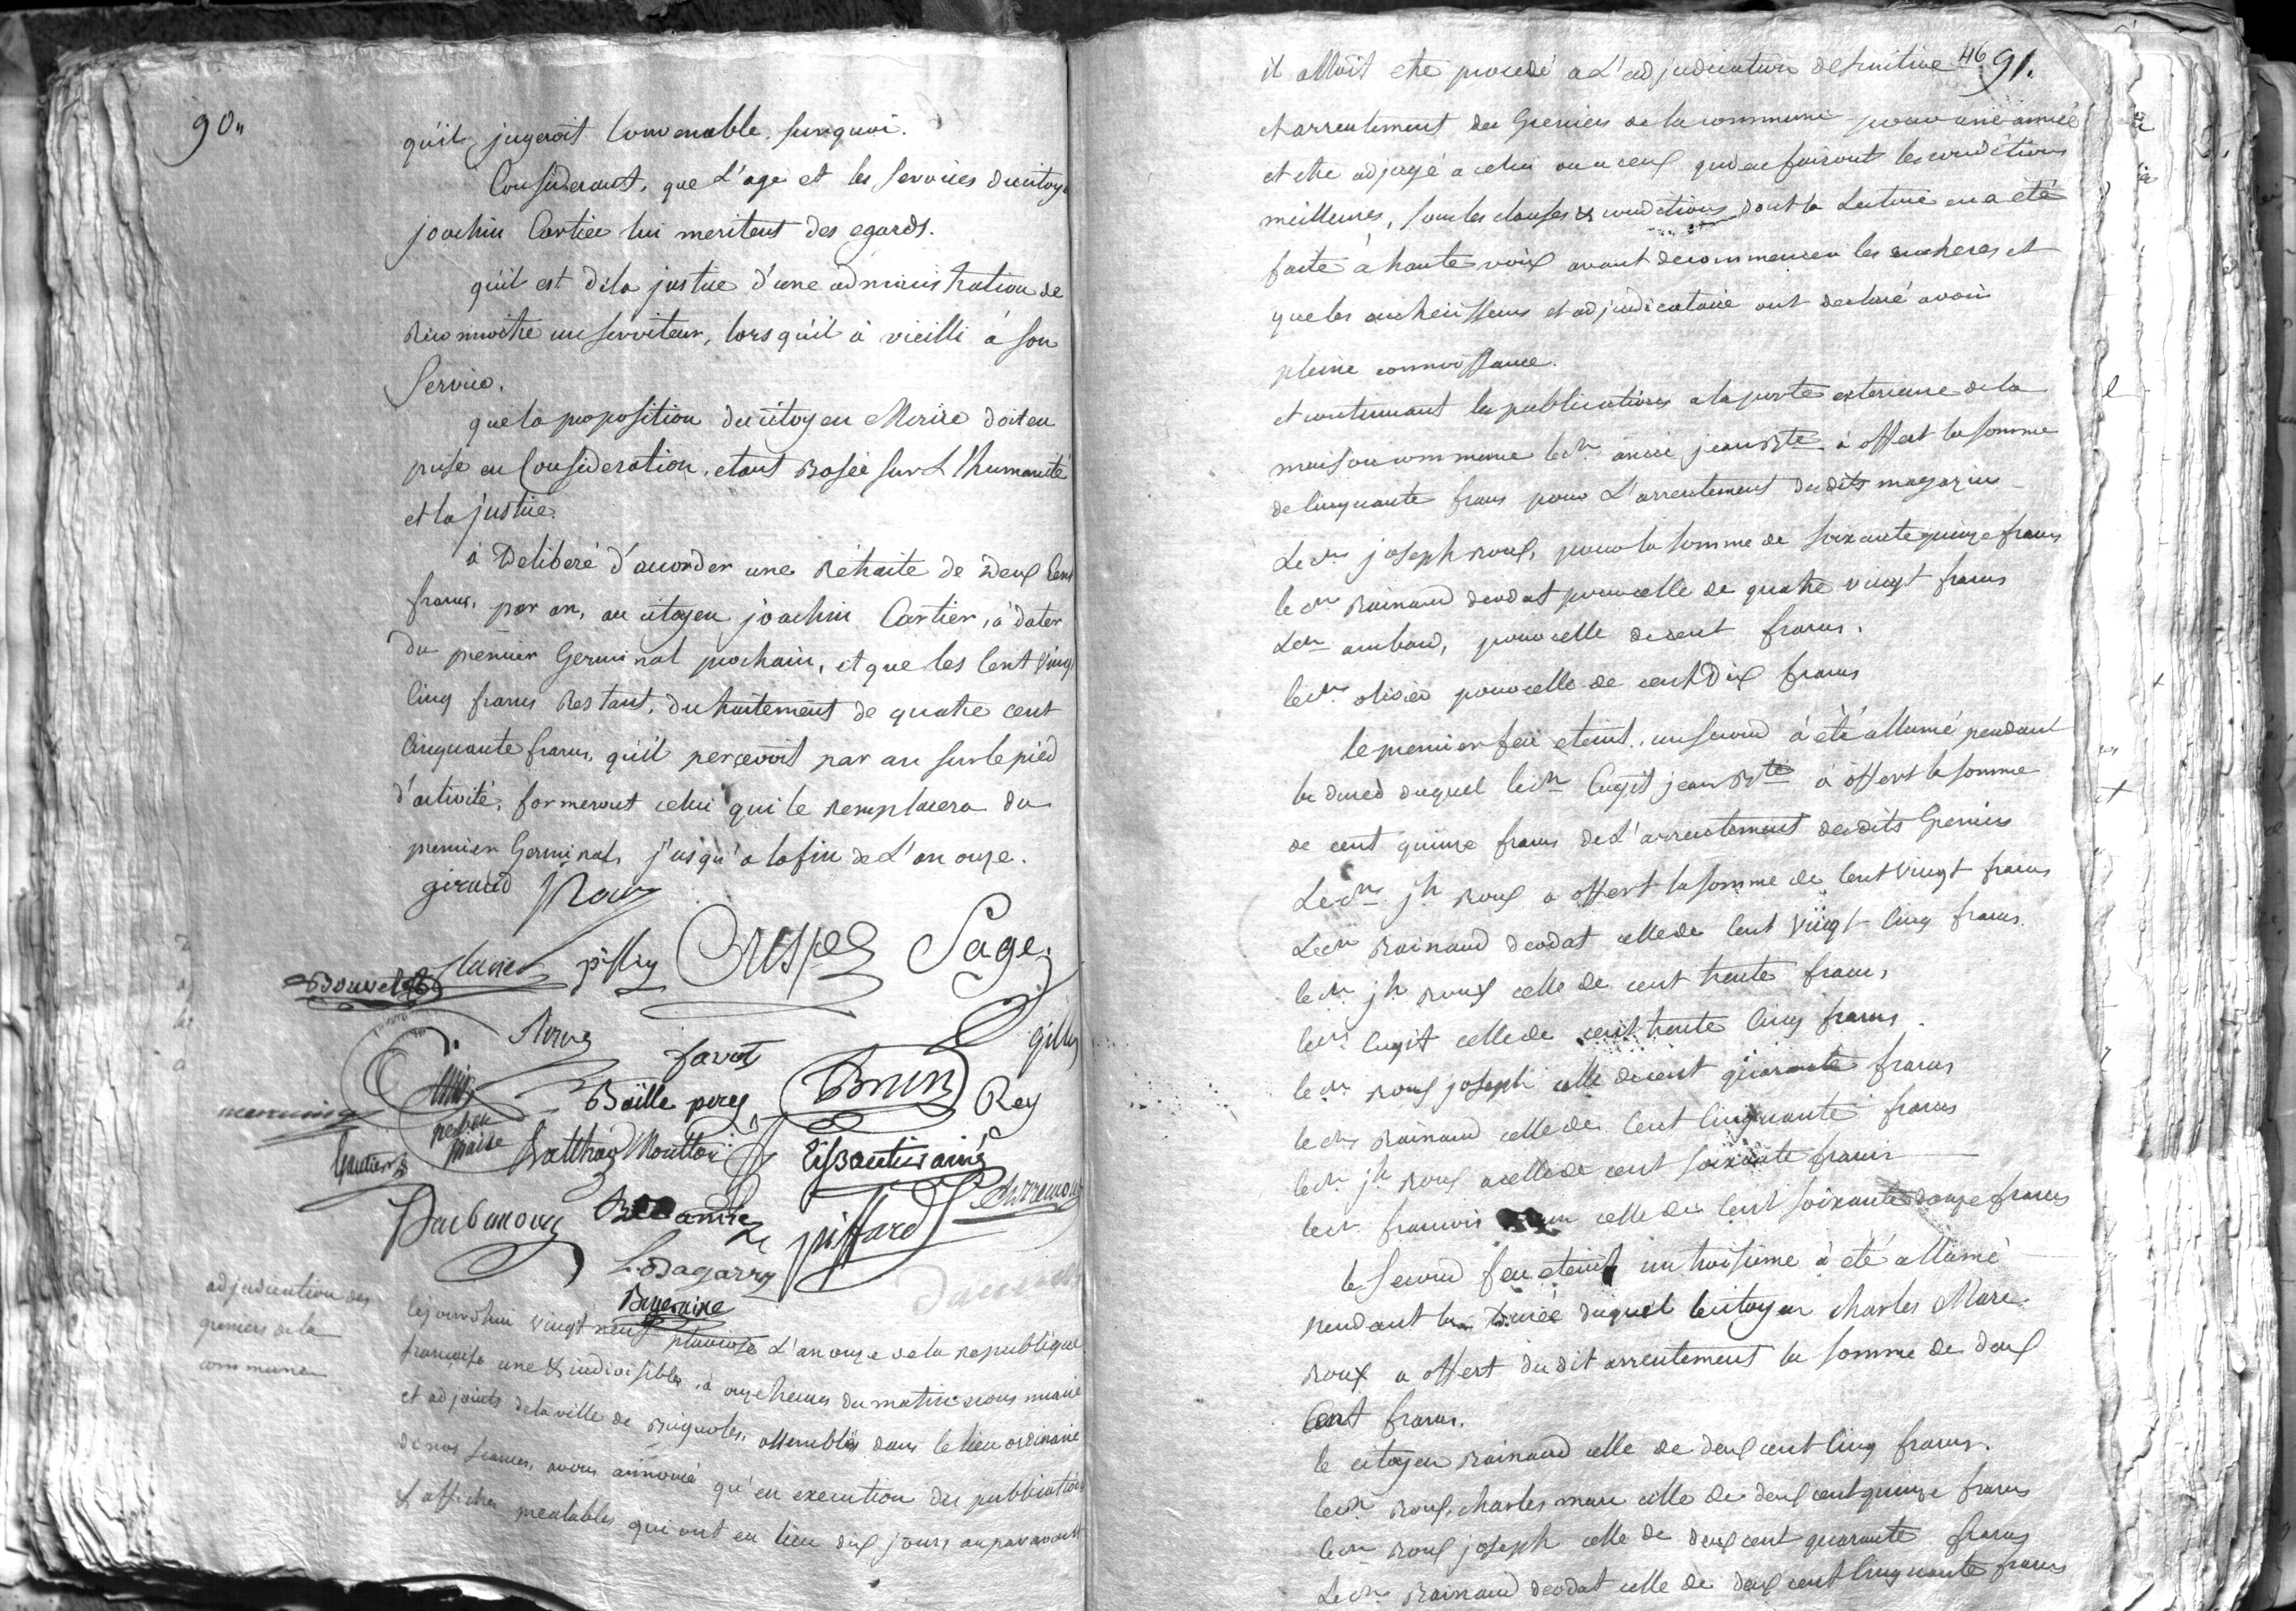 90"
qu'il jugeroit Convenable. surquoi.
Considerant, que L'age et les services du citoy
joachin Cartier lui meritent des egards.
qu'il est de la justice d'une administration de
Reconnoitre un serviteur, lorsqu'il à vieilli à son
Service.
que la proposition du citoyen Maire doit en
prise en Consideration, etant Basée sur L'humanité
et la justice.
à Deliberé d'accorder une Retraite de Deux Cent
francs, par an, au citoyen joachin Cartier, à dater
du premier Germinal prochain, et que les Cent Vingt
Cinq francs Restant, du traitement de quatre cent
Cinquante francs, qu'il percevoit par an sur le pied
d'activité, formeront celui qui le Remplacera du
premier Germinal, jusqu'a la fin de L'an onze.
giraud Roux
Bouvet Crespe Sage
favre gilly
Baille perez Brun Rey
Gautier Balthard Moutton Lissautier ainé
Barbaroux piffard
L. Dagarry
adjudication des
greniers de la
commune
Cejourdhui vingt neuf pluviose L'an onze de la republique
francaise une & indivisible, à onze heures du matin nous maire
et adjoints de la ville de Brignoles, assemblés dans le lieu ordinaire
de nos seances, avons annoncé qu'en execution des publications
& affiches prealables qui ont eu lieu dix jours auparavant
46 91.
il alloit etre procedé a L'adjudication definitive
et arrentement des Greniers de la commune pour une année
et etre adjugé a celui ou a ceux qui en fairont les conditions
meilleures, sous les clauses & conditions dont la Lecture en a été
faite à haute voix avant de commencer les encheres et
que les encherisseurs et adjudicataire ont declaré avoir
pleine connoissance.
et continuant les publications a la porte exterieure de la
maison commune le cn. jean Bte à offert la somme
de Cinquante francs pour L'arrentement desdits magazins
Le cn joseph Roux, pour la somme de soixante quinze francs
le cn Rainaud deodat pour celle de quatre vingt francs
Le cn ambard, pour celle de cent francs.
le cn. olivier pour celle de cent Dix francs
le premier feu eteint, un second à été allumé pendant
la durée duquel le cn Cugit jean Bte à offert la somme
de cent quinze francs de L'arrentement desdits Greniers
Le cn jh Roux a offert la somme de Cent Vingt francs
Le cn Rainaud deodat celle de Cent Vingt Cinq francs.
le cn. jh Roux celle de cent trente francs,
le cn Cugit celle de cent trente Cinq francs.
le cn Roux joseph celle de cent quarante francs
le cn Rainaud celle de Cent Cinquante francs
le cn jh Roux celle de cent soixante francs
le cn francois celle de Cent soixante douze francs
le second feu eteint un troisieme à été allumé
pendant la Durée duquel le citoyen Charles Marc
Roux a offert dudit arrentement la somme de deux
Cent francs.
le citoyen Rainaud celle de deux cent Cinq francs.
le cn Roux, charles marc celle de deux cent quinze francs
le cn Roux joseph celle de deux cent quarante francs
Le cn Rainaud deodat celle de deux cent Cinquante francs